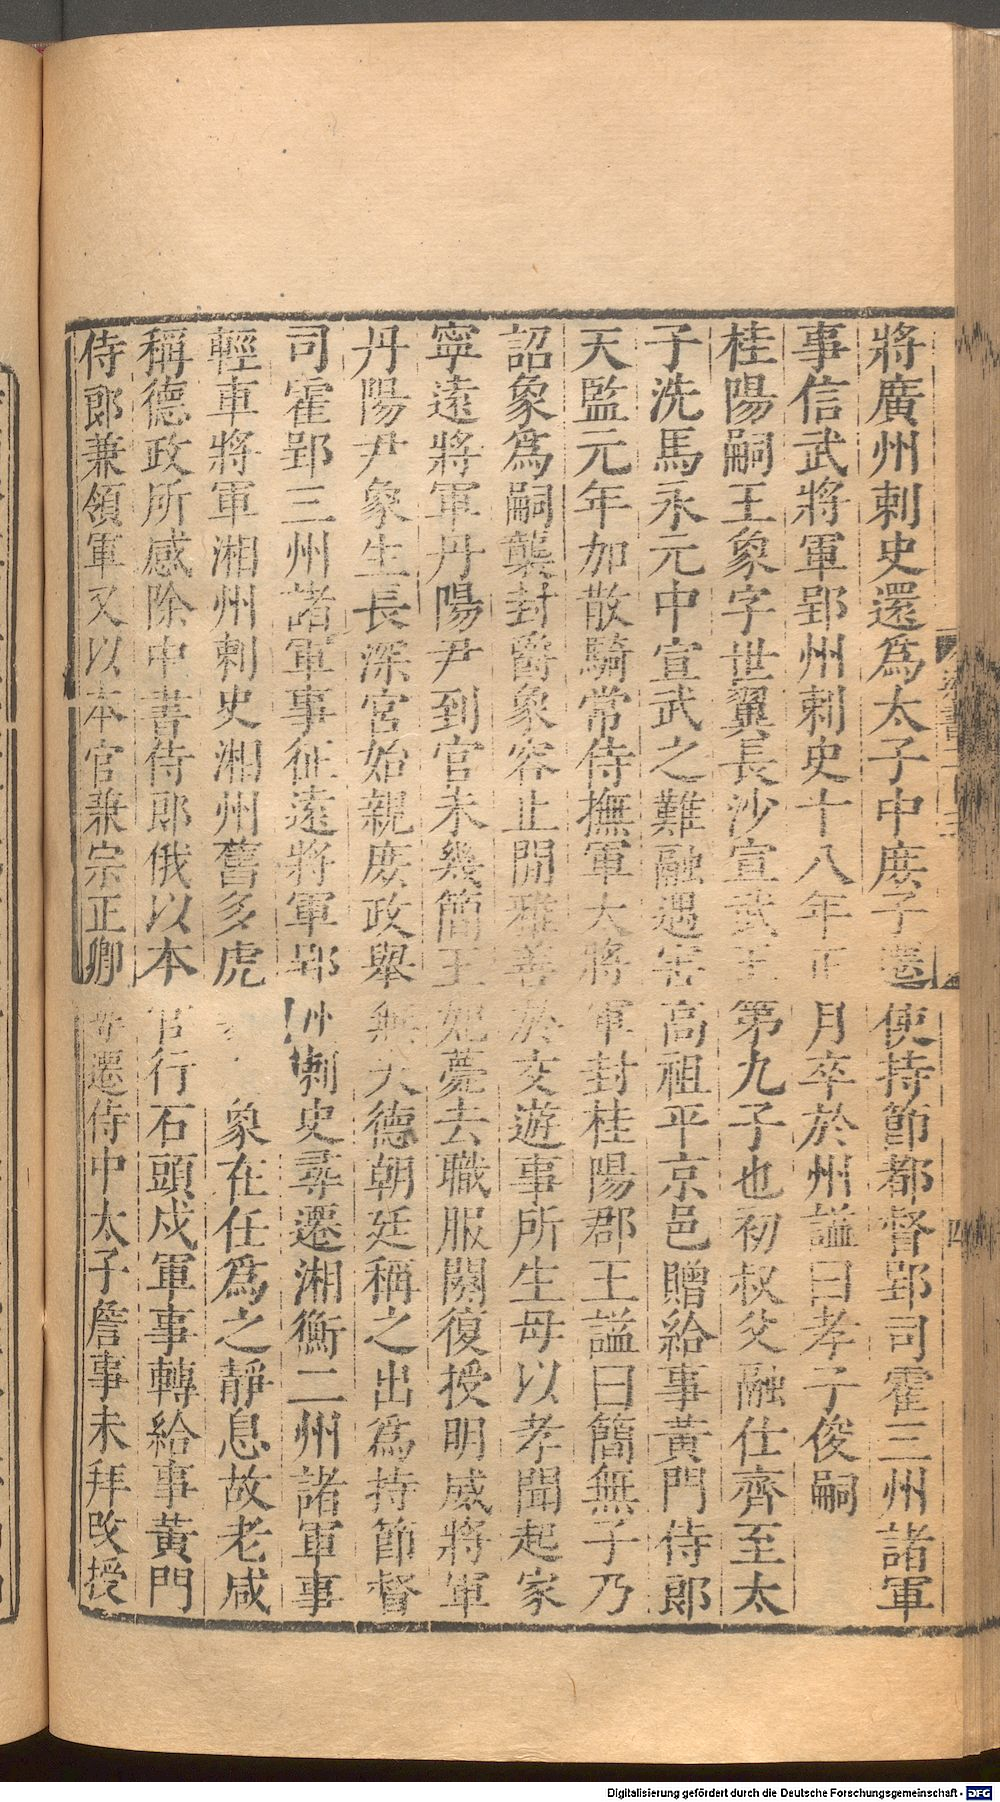 將廣州刺史還爲太子中庶子遷使持節都督郢司霍三州諸軍
事信武將軍郢州刺史十八年正月卒於州謚曰孝子俊嗣
桂陽嗣王象字世翼長沙宣武王第九子也初叔父融仕齊至太
子洗馬永元中宣武之難融遇害高祖平京邑贈給事黃門侍郎
天監元年加散騎常侍撫軍大將軍封桂陽郡王謚曰簡無子乃
詔象爲嗣襲封爵象容止閒雅善於交遊事所生母以孝聞起家
寧遠將軍丹陽尹到官未幾簡王妃薨去職服闋復授明威將軍
丹陽尹象生長深宮始親庶政舉無失德朝廷稱之出爲持節督
司霍郢三州諸軍事征遠將軍郢州刺史尋遷湘衡二州諸軍事
輕車將軍湘州刺史湘州舊多虎象在任爲之靜息故老咸
稱德政所感除中書侍郎俄以本官行石頭戍軍事轉給事黃門
侍郎兼領軍又以本官兼宗正卿尋遷侍中太子詹事未拜改授
四
Digitalisierung gefördert durch die Deutsche Forschungsgemeinschaft - DFG